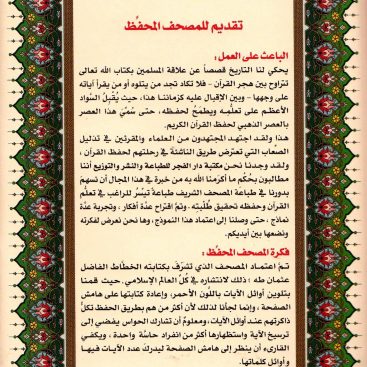 تقديم للمصحف المحفَّظ
الباعث على العمل :
يحكي لنا التاريخ قصصاً عن علاقة المسلمين بكتاب الله تعالى
تتراوح بين هجر القرآن - فلا تكاد تجد من يتلوه أو من يقرأ آياته
على وجهها - وبين الإقبال عليه كزماننا هذا، حيث يُقبلُ السّواد
الأعظـم على تعلُّمـه ويطمَحُ لحفظه، حتى سُمّيَ هذا العصر
بالعصر الذهبي لحفظ القرآن الكريم.
هذا ولقد اجتهد المجتهدون من العلماء والمقرئين في تذليل
الصّعاب التي تعترض طريق الناشئة في رحلتهم لحفظ القرآن ،
ولقد وجدنا نحن مكتبة دار الفجر للطباعة والنشر والتوزيع أننا
مطالبون بحُكم ما أكرمَنا الله به من خبرة في هذا المجال أن نسهمَ
بدورنا في طباعة المصحف الشريف طباعةً تيسّر للراغب في تعلُّم
القرآن وحفظه تحقيق طُلبته. وتمّ اقتراح عدّة أفكار ، وتجربة عدّة
نماذج ، حتى وصلنا إلى اعتماد هذا النموذج، وها نحن نعرض لفكرته
ونضعها بين أيديكم.
فكرة المصحف المحفَّظ :
تـمّ اعتمـاد المصحف الذي تشرّفَ بكتابته الخطّاط الفاضل
عثمان طه ؛ لذلك لانتشاره في كلِّ العالم الإسلامي. حيث قمنا
بتلوين أوائل الآيات باللّون الأحمر، وإعادة كتابتها على هامش
الصفحة ، وإنما لجأنا لذلك لأن أكثر من هم بطريق الحفظ تكلُّ
ذاكرتهم عند أوائل الآيات، ومعلومٌ أن تشارك الحواس يفضي إلى
ترسيخ الآية واستظهارها أكثر من انفراد حاسّة واحدة ، ويكفي
القارىء أن ينظر إلى هامش الصفحة ليدرك عدد الآيات فيهـا
وأوائل كلماتها.